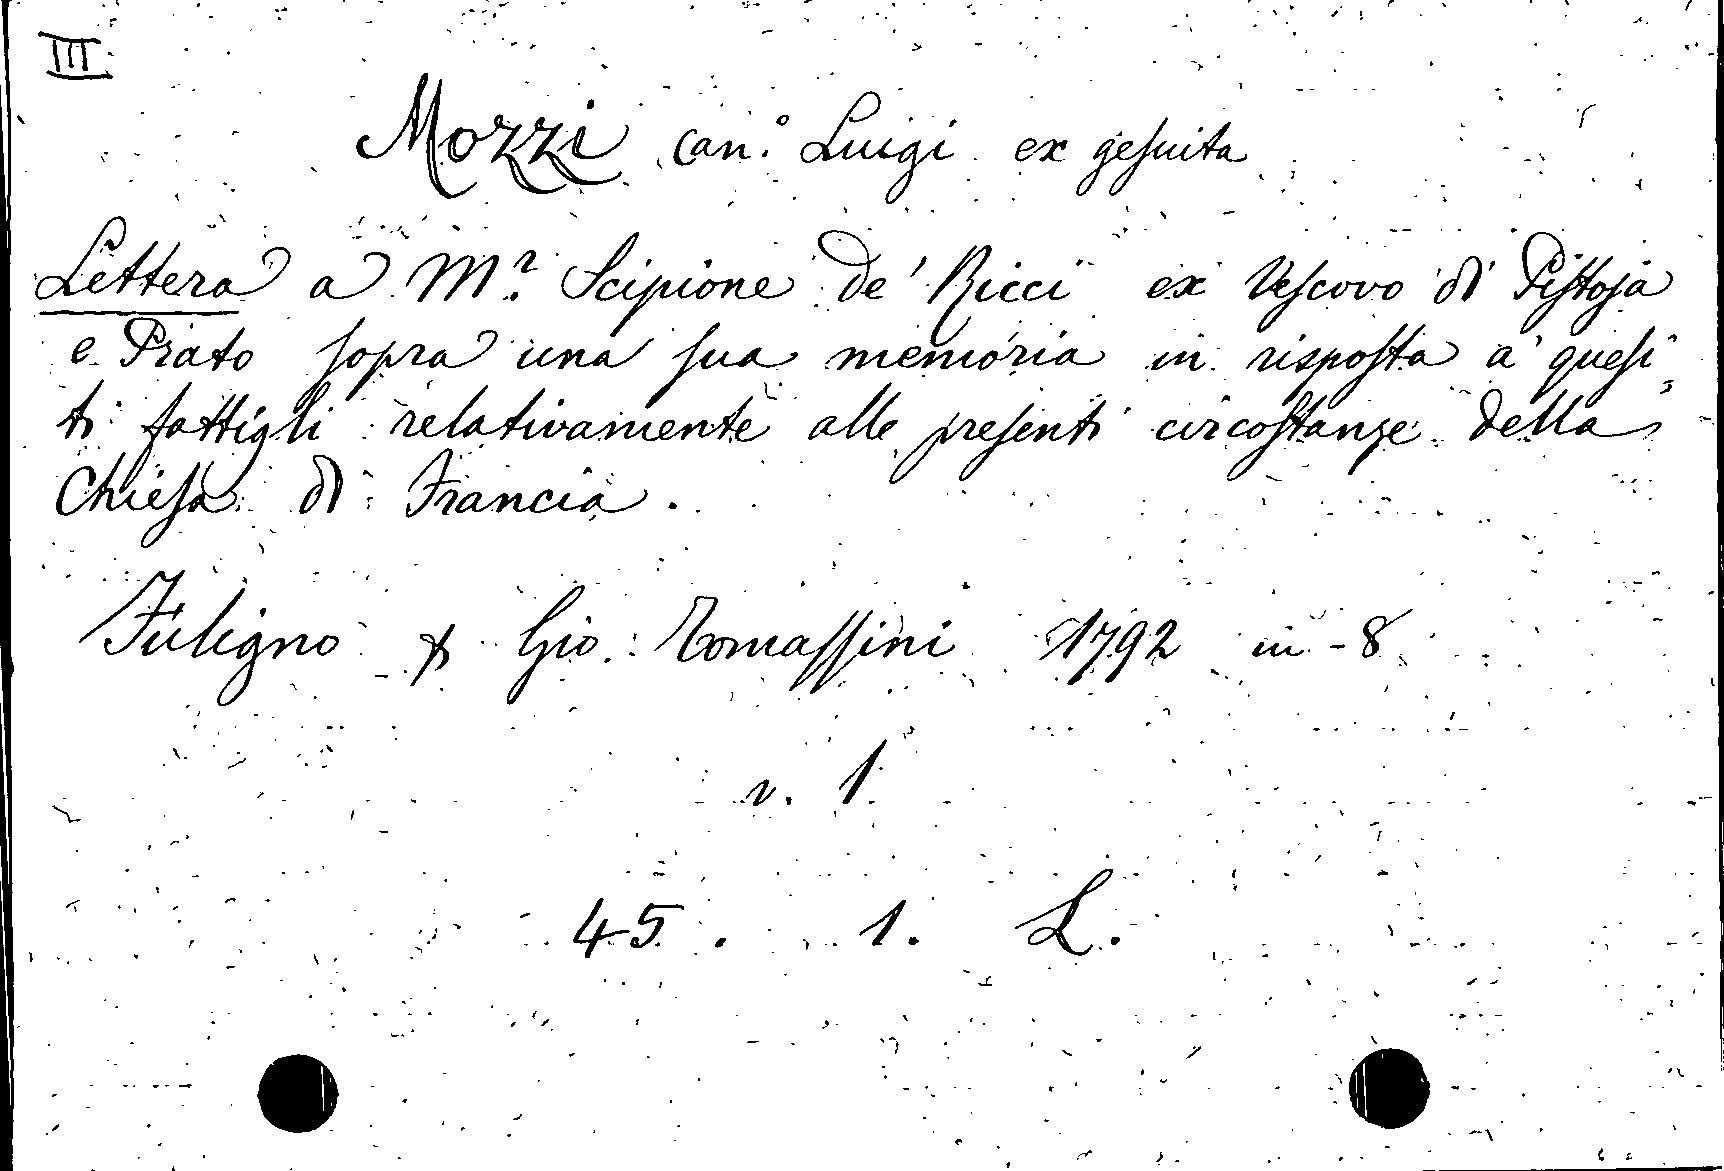 III
Mozzi can.º Luigi ex gesuita
Lettera a M.r Scipione de' Ricci ex Vescovo di Pistoja
e Prato sopra una sua memoria in risposta a' quesi
ti fattigli relativamente alle presenti circostanze della
Chiesa di Francia.
Fuligno x Gio: Tomassini 1792 in-8
v. 1
45. 1. L.